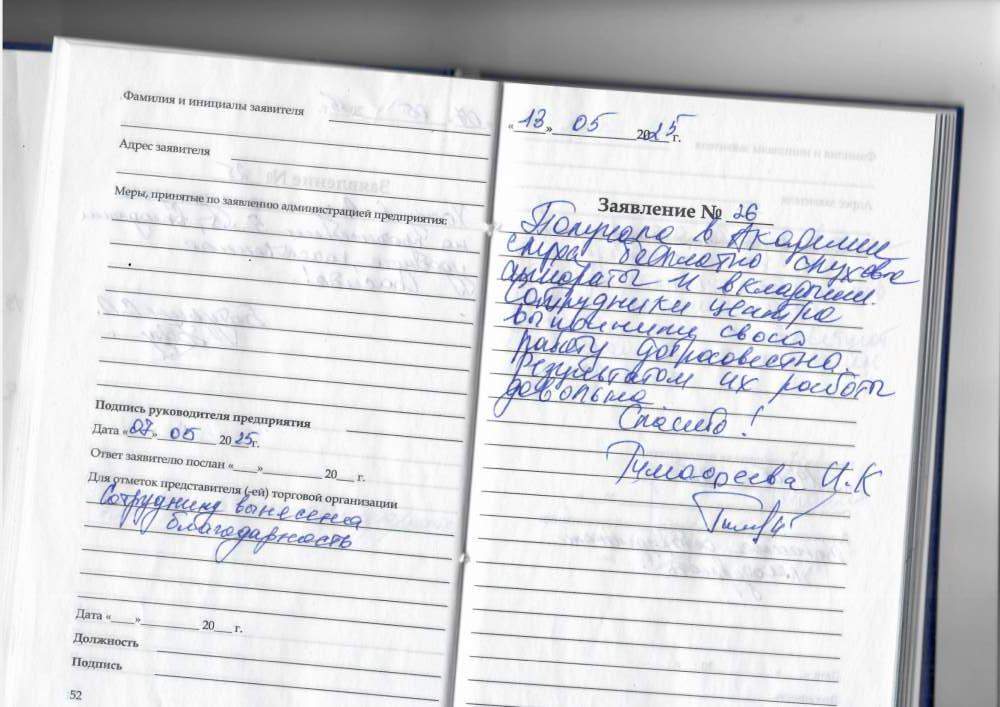 Фамилия и инициалы заявителя
Адрес заявителя
Меры, принятые по заявлению администрацией предприятия:
Подпись руководителя предприятия
Дата «07» 05 2025г.
Ответ заявителю послан «____»__________ 20___ г.
Для отметок представителя (-ей) торговой организации
Сотруднику вынесена
благодарность
Дата «____»__________ 20___ г.
Должность
Подпись
52
«13» 05 2025 г.
Заявление № 26
Получала в Академии
слуха бесплатно слуховые
аппараты и вкладыши.
Сотрудники центра
выполнили свою
работу добросовестно.
Результатом их работы
довольна
Спасибо!
Тимофеева И.К